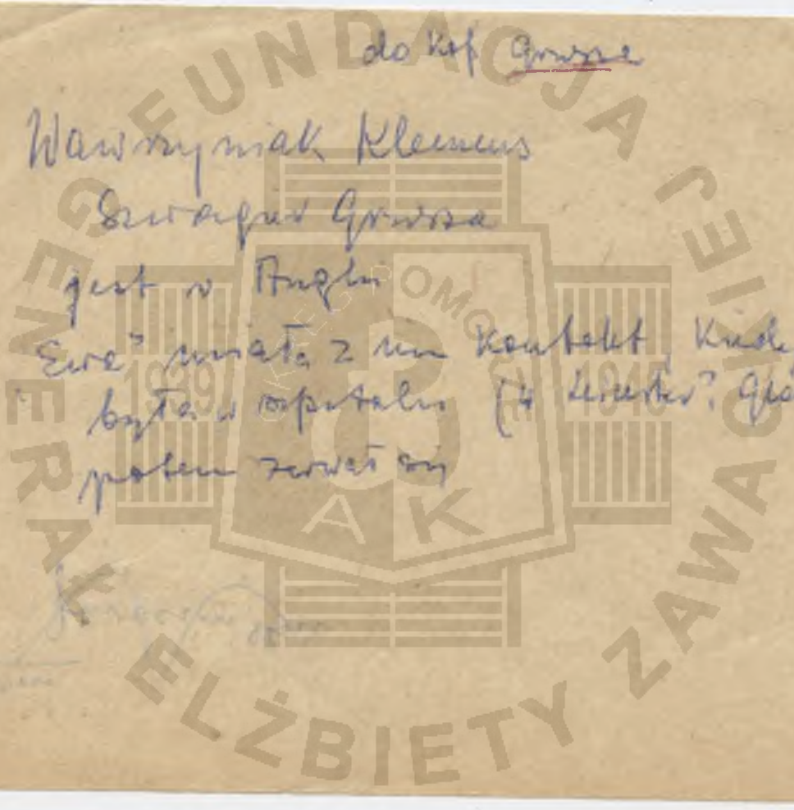 do kop Grussa
Wawrzyniak Klemens
Szwagier Grussa
jest w Anglii
"Ewa" miała z nim kontakt, kiedy
była w szpitalu (w Leicester?
potem zerwał się
FUNDACJA GENERAŁ ELŻBIETY ZAWACKIEJ
OKRĘG POMORZE
1939 1945
AK